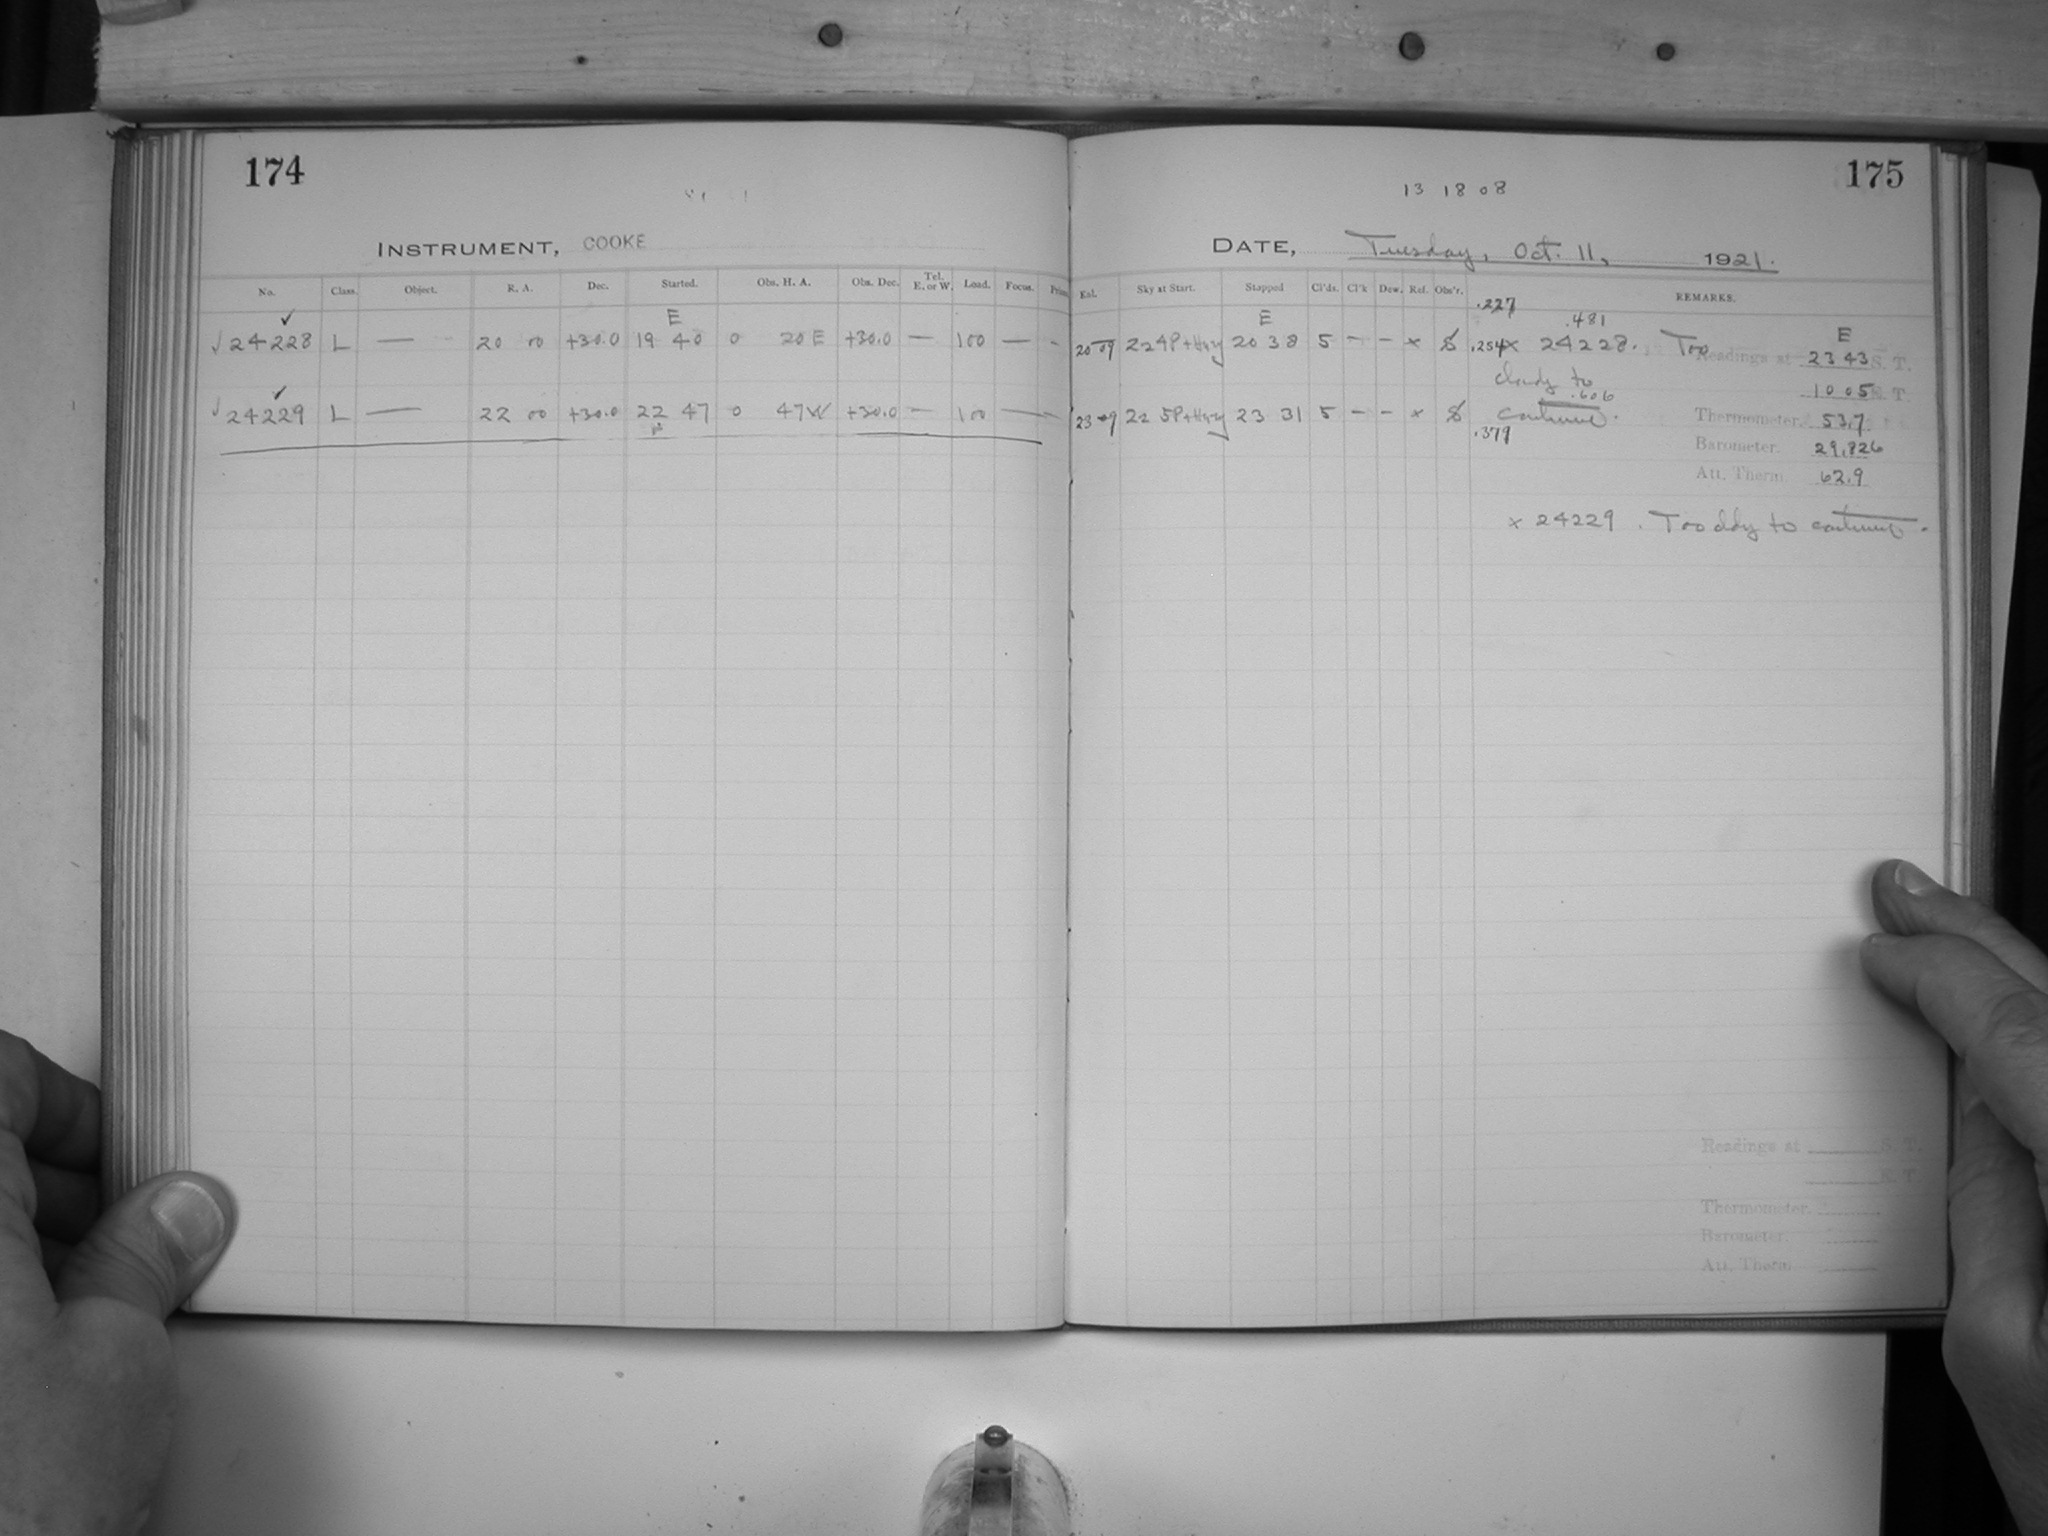 174
INSTRUMENT, COOKE
No. Class. Object. R. A. Dec. Started. Obs. H. A. Obs. Dec. Tel. E. or W. Load. Focus.
E
24228 L — 20 00 +30.0 19 40 0 20 E +30.0 — 100 — -
24229 L — 22 00 +30.0 22 47 0 47 W +30.0 — 100 —
175
13 18 08
DATE, Tuesday, Oct. 11, 1921.
Sky at Start. Stopped Cl'ds. Cl'k Dew. Ref. Obs'r. REMARKS.
.227
E .481 E
20 09 20 38 5 - - x .254 x 24228. Too
Readings at 23 43 S. T.
cloudy to 10 05 E. T.
.606
23 09 22 5P+Hzy 23 31 5 - - x continue. Thermometer. 53.7
.379
Barometer. 29.826
Att. Therm 62.9
x 24229. Too cldy to continue.
Readings at S. T.
E. T.
Thermometer.
Barometer.
Att. Therm